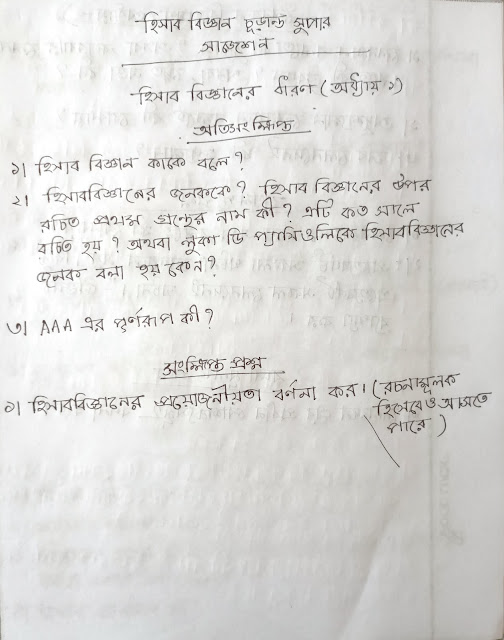 হিসাব বিজ্ঞান চূড়ান্ত সুপার
সাজেশন
হিসাব বিজ্ঞানের ধারণা (অধ্যায় ১)
অতিসংক্ষিপ্ত
১। হিসাব বিজ্ঞান কাকে বলে?
২। হিসাববিজ্ঞানের জনককে? হিসাব বিজ্ঞানের উপর
রচিত প্রথম গ্রন্থের নাম কী? এটি কত সালে
রচিত হয়? অথবা লুকা ডি প্যাসিওলিকে হিসাববিজ্ঞানের
জনক বলা হয় কেন?
৩। AAA এর পূর্ণরূপ কী?
সংক্ষিপ্ত প্রশ্ন
১। হিসাববিজ্ঞানের প্রয়োজনীয়তা বর্ণনা কর। (রচনামূলক
হিসেবেও আসতে
পারে)